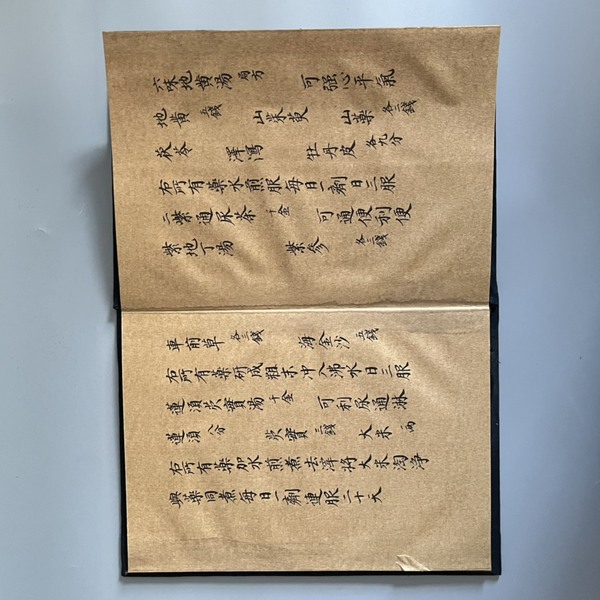 六味地黄湯 局方 可强心平氣
地黄 五錢 山茱萸 山藥 各三錢
茯苓 澤瀉 牡丹皮 各九分
右所有藥水煎服每日一劑日三服
二紫通尿茶 千金 可通便利便
紫地丁湯 紫參 各三錢
車前草 各三錢 海金沙 五錢
右所有藥研成粗末冲入沸水日三服
蓮須芡實湯 千金 可利尿通淋
蓮須 八分 芡實 三錢 大米
右所有藥加水煎煮去滓將大米淘净
與藥同煮每日一劑連服二十天